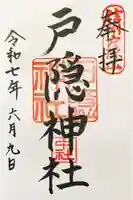 奉拝
戸隠神社
令和七年六月九日